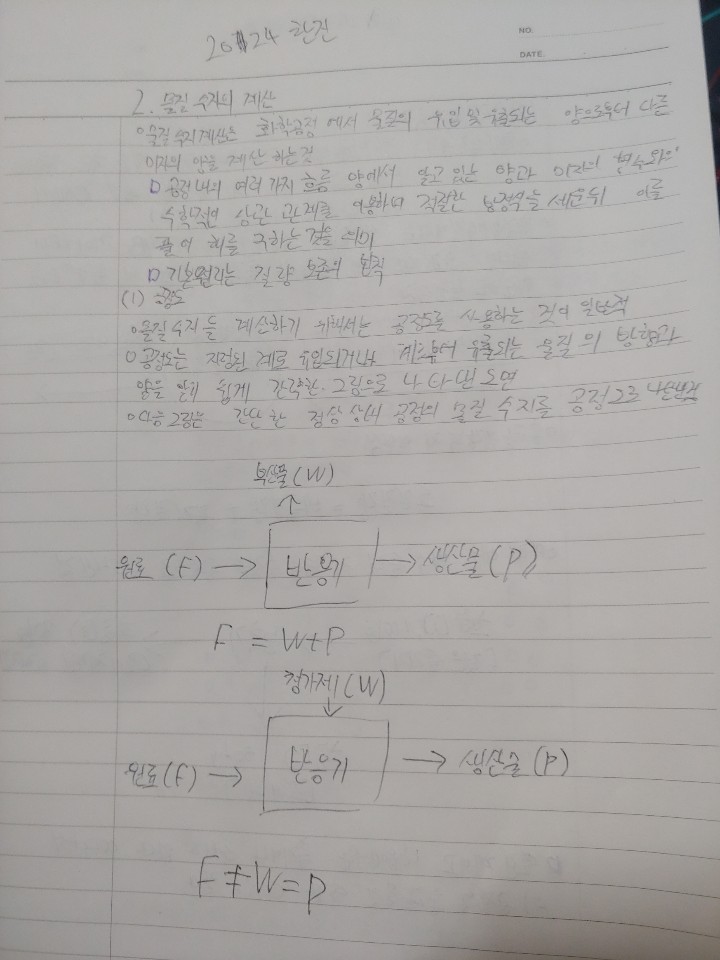 20124 한진
NO.
DATE
2. 물질 수지의 계산
○물질 수지 계산은 화학공정에서 물질의 유입 및 유출되는 양으로부터 다른
미지의 양을 계산 하는것
□ 공정 내의 여러 가지 흐름 양에서 알고 있는 양과 미지의 변수와의
수학적인 상관 관계를 이용하여 적절한 방정식을 세운뒤 이를
풀어 해를 구하는 것을 의미
□ 기본원리는 질량 보존의 법칙
(1) 공정도
○물질 수지를 계산하기 위해서는 공정도를 사용하는 것이 일반적
○공정도는 지정된 계로 유입되거나 계로부터 유출되는 물질의 방향과
양을 알기 쉽게 간략한 그림으로 나타낸 도면
○다음 그림은 간단한 정상 상태 공정의 물질 수지를 공정도로
부산물(W)
↑
원료 (F) → 반응기 → 생산물(P)
F = W+P
첨가제(W)
↓
원료(F) → 반응기 → 생산물(P)
F+W=P